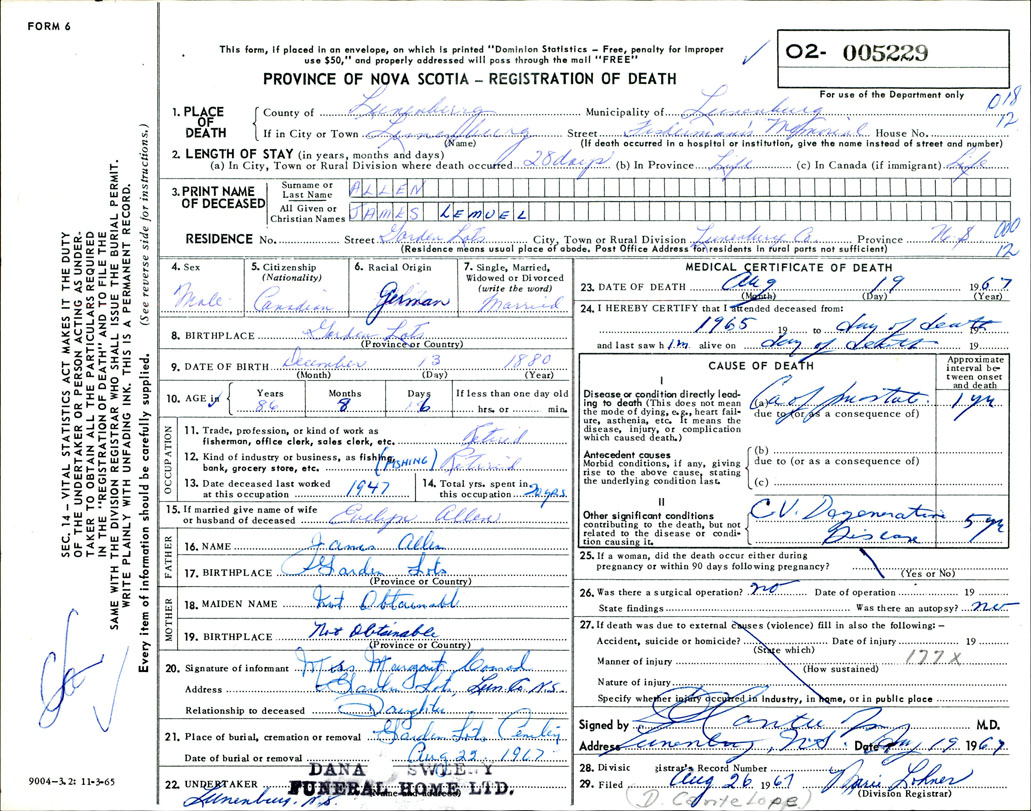 FORM 6
This form, if placed in an envelope, on which is printed "Dominion Statistics – Free, penalty for improper
use $50," and properly addressed will pass through the mail "FREE"
O2- 005229
PROVINCE OF NOVA SCOTIA – REGISTRATION OF DEATH
For use of the Department only
018
12
1. PLACE OF DEATH
County of Lunenburg Municipality of Lunenburg
If in City or Town Lunenburg Street Fisherman's Memorial House No.
(Name) (If death occurred in a hospital or institution, give the name instead of street and number)
2. LENGTH OF STAY (in years, months and days)
(a) In City, Town or Rural Division where death occurred 28 days (b) In Province Life (c) In Canada (if immigrant) Life
3. PRINT NAME OF DECEASED
Surname or Last Name ALLEN
All Given or Christian Names JAMES LEMUEL
RESIDENCE No. Street Garden Lots City, Town or Rural Division Lunenburg Co. Province N.S
000
12
(Residence means usual place of abode. Post Office Address for residents in rural parts not sufficient)
4. Sex
Male
5. Citizenship (Nationality)
Canadian
6. Racial Origin
German
7. Single, Married, Widowed or Divorced (write the word)
Married
8. BIRTHPLACE Garden Lots
(Province or Country)
9. DATE OF BIRTH December 13 1880
(Month) (Day) (Year)
10. AGE in
Years 86
Months 8
Days 6
If less than one day old
hrs. or min.
OCCUPATION
11. Trade, profession, or kind of work as
fisherman, office clerk, sales clerk, etc. Retired
12. Kind of industry or business, as fishing, (FISHING)
bank, grocery store, etc. Retired
13. Date deceased last worked
at this occupation 1947
14. Total yrs. spent in
this occupation YRS.
15. If married give name of wife
or husband of deceased Evelyn Allen
FATHER
16. NAME James Allen
17. BIRTHPLACE Garden Lots
(Province or Country)
MOTHER
18. MAIDEN NAME Not Obtainable
19. BIRTHPLACE Not Obtainable
(Province or Country)
20. Signature of informant Mrs Margaret Conrad
Address Garden Lots, Lun. Co. N.S.
Relationship to deceased Daughter
21. Place of burial, cremation or removal Garden Lots
Date of burial or removal Aug 22 1967
22. UNDERTAKER
(Name and address)
DANA SWEENY
FUNERAL HOME LTD.
Lunenburg, N.S.
MEDICAL CERTIFICATE OF DEATH
23. DATE OF DEATH Aug 19 1967
(Month) (Day) (Year)
24. I HEREBY CERTIFY that I attended deceased from:
1965 19 to day of death 19
and last saw him alive on day of death 19
CAUSE OF DEATH
Approximate interval between onset and death
I
Disease or condition directly leading to death (This does not mean the mode of dying, e.g., heart failure, asthenia, etc. It means the disease, injury, or complication which caused death.)
(a) Ca of prostate 1 yr
due to (or as a consequence of)
Antecedent causes
Morbid conditions, if any, giving rise to the above cause, stating the underlying condition last.
(b)
due to (or as a consequence of)
(c)
II
Other significant conditions
contributing to the death, but not related to the disease or condition causing it.
C.V. Degenerative
Disease 5 yr
25. If a woman, did the death occur either during
pregnancy or within 90 days following pregnancy?
(Yes or No)
26. Was there a surgical operation? no Date of operation 19
State findings Was there an autopsy? no
27. If death was due to external causes (violence) fill in also the following: –
Accident, suicide or homicide? Date of injury 19
(State which)
Manner of injury 177X
(How sustained)
Nature of injury
Specify whether injury occurred in industry, in home, or in public place
Signed by M.D.
Address Lunenburg, N.S. Date Aug 19 1967
28. Division Registrar's Record Number
29. Filed Aug 26 1967
(Division Registrar)
SEC. 14 – VITAL STATISTICS ACT MAKES IT THE DUTY
OF THE UNDERTAKER OR PERSON ACTING AS UNDER-
TAKER TO OBTAIN ALL THE PARTICULARS REQUIRED
IN THE "REGISTRATION OF DEATH" AND TO FILE THE
SAME WITH THE DIVISION REGISTRAR WHO SHALL ISSUE THE BURIAL PERMIT.
WRITE PLAINLY WITH UNFADING INK. THIS IS A PERMANENT RECORD.
Every item of information should be carefully supplied. (See reverse side for instructions.)
9004-3.2: 11-3-65